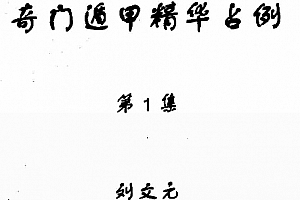 奇门遁甲精华占例
第1集
刘文元